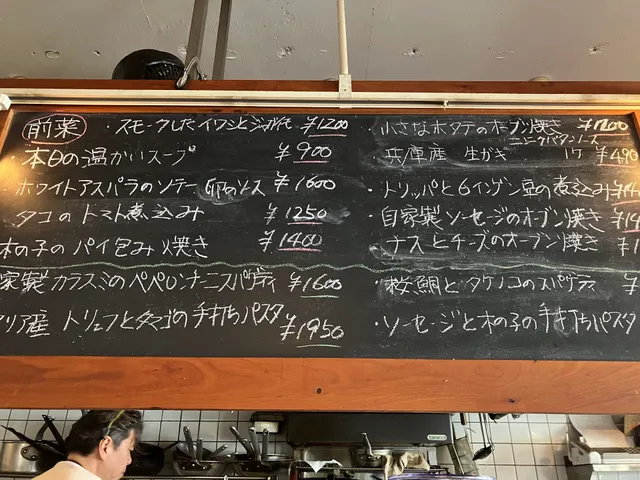 前菜 ・スモークしたイワシとジャガイモ ¥1200
・本日の温かいスープ ¥900
・ホワイトアスパラのソテー 卵のソース ¥1600
タコのトマト煮込み ¥1250
木の子のパイ包み焼き ¥1400
家製カラスミのペペロンチーニスパゲティ ¥1600
リア産 トリュフとタマゴの手打ちパスタ ¥1950
・小さなホタテのオーブン焼き ¥1200
ニンニクバターソース
兵庫産 生ガキ 1ケ ¥490
・トリッパと白インゲン豆の煮込み
・自家製ソーセージのオーブン焼き
・ナスとチーズのオーブン焼き
・桜鯛とタケノコのスパゲティ
・ソーセージと木の子の手打ちパスタ